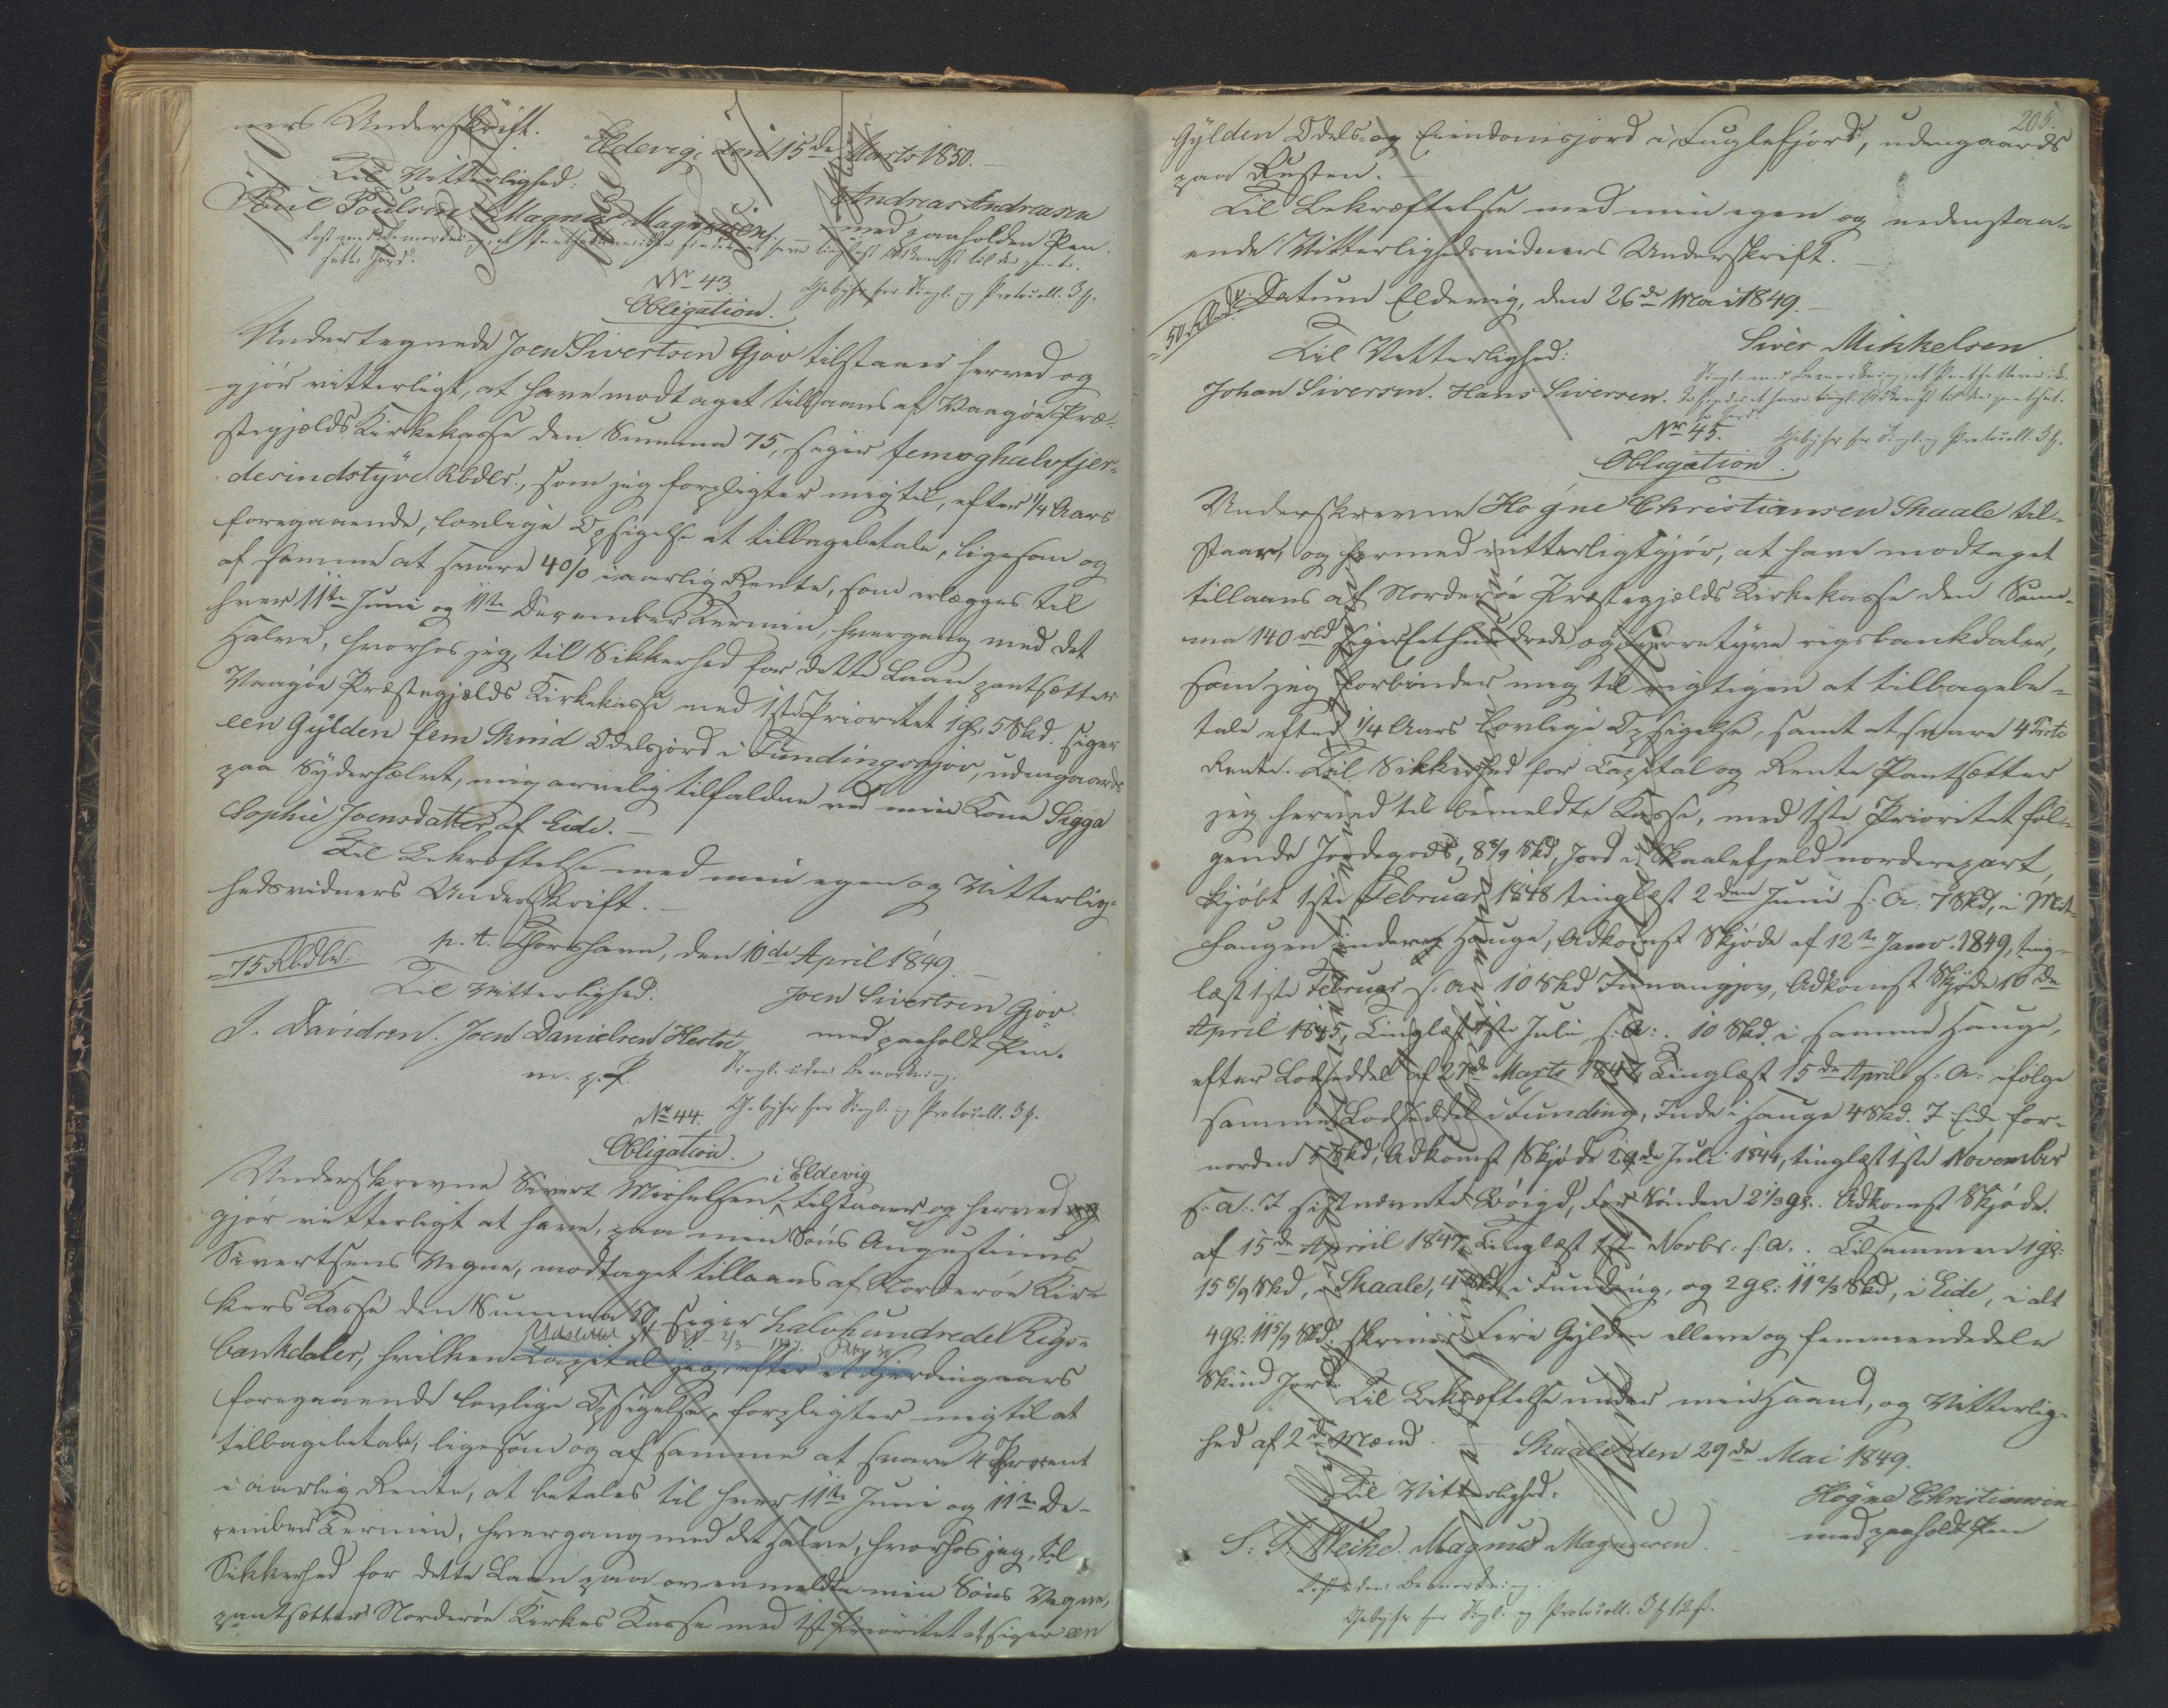 ners Underskrift.
Eldevig, den 15de Marts 1850.
Til Vitterlighed:
Andreas Andreasen
Poul Poulsen Magnus Magnusen.
med paaholden Pen.
Læst med Bemærkning at Pantsætteren ikke findes at have tinglæst Adkomst til den pantsatte Jord.
Nr 43.
Gebyhr for Tingl. og Protocoll. 3 ß.
Obligation.
Undertegnede Joen Sivertsen Gjov tilstaaer herved og
gjør vitterligt, at have modtaget tillaans af Vaagøe Præ-
stegjælds Kirkekasse den Summa 75, siger femoghalvfjer-
desindstyve Rbdlr, som jeg forpligter mig til, efter 1/4 Aars
foregaaende, lovlige Opsigelse at tilbagebetale, ligesom og
af samme at svare 4 0/0 i aarlig Rente, som erlægges til
hver 11te Juni og 11te December Termin, hvergang med det
Halve, hvorhos jeg, til Sikkerhed for dette Laan pantsætter
Vaagøe Præstegjælds Kirkekasse med 1ste Prioritet 1 Gl. 5 Skd. siger
een Gylden fem Skind Odelsjord i Fundingsgjov, udengaards
paa Syderhælvt, mig arvelig tilfalden ved min Kone Sigga
Sophie Joensdatter af Eide.
Til Bekræftelse med min egen og Vitterlig-
hedsvidners Underskrift.
p. t. Thorshavn, den 10de April 1849.
75 Rbdlr.
Til Vitterlighed.
Joen Sivertsen Gjov
J. Davidsen. Joen Danielsen Hestøe
med paaholdt Pen.
m. p. P.
Tingl. uden Bemærkning.
Nr 44.
Gebyhr for Tingl. og Protocoll. 3 ß.
Obligation.
i Eldevig
Underskrevne Sivert Michelsen, tilstaaer og herved og
gjør vitterligt at have, paa min Søns Augustinus
Sivertsens Vegne, modtaget tillaans af Norderøe Kir-
kers Kasse den Summa 50, siger halvhundrede Rigs-
Udslettet
bankdaler, hvilken Capital jeg, efter et Fjerdingaars
foregaaende lovlige Opsigelse, forpligter mig til at
tilbagebetale, ligesom og af samme at svare 4 Procent
i aarlig Rente, at betales til hver 11te Juni og 11te De-
cember Termin, hvergang med det Halve, hvorhos jeg, til
Sikkerhed for dette Laan paa ovenmeldte min Søns Vegne,
pantsætter Norderøe Kirkers Kasse med 1ste Prioritet siger een
205.
Gylden Odels- og Eiendomsjord i Fuglefjord, udengaards
paa Rusten.
Til Bekræftelse med min egen og nedenstaa-
ende Vitterlighedsvidners Underskrift.
50 Rbdlr.
Datum Eldevig, den 26de Mai 1849.
Til Vitterlighed:
Siver Mikkelsen
Johan Siversen. Hans Siversen.
Tingl. med Bemærkning, at Pantsætteren ik-
ke findes at have tingl. Adkomst til den pantsat-
te Jord.
Nr 45.
Gebyhr for Tingl. og Protocoll. 3 ß.
Obligation.
Underskrevne Høgne Christiansen Skaale til-
staar, og hermed vitterligtgjør, at have modtaget
tillaans af Norderøe Præstegjælds Kirkekasse den Sum-
ma 140 rbd siger Eethundrede og fyrretyve rigsbankdaler,
som jeg forbinder mig til rigtigen at tilbagebe-
tale efter 1/4 Aars lovlige Opsigelse, samt at svare 4 Prcto
Rente. Til Sikkerhed for Capital og Rente Pantsætter
jeg herved til bemeldte Kasse, med 1ste Prioritet føl-
gende Jordegods, 8 8/9 Skd, Jord i Skaalefjeld nordrepart,
kjøbt 1ste Februar 1848 tinglæst 2den Juni s. A. 7 Skd, i Mit-
haugen inderst Hauge, Adkomst Skjøde af 12te Janv. 1849, ting-
læst 1ste Februar s. a. 10 Skd Funangjov, Adkomst Skjøde 10de
April 1845, Tinglæst 1ste Juli s. A: 10 Skd i samme Hauge,
efter Lodseddel af 27de Marts 1847, Tinglæst 15de April s. A. ifølge
samme Lodseddel i Funding, Inde i Hauge 4 Skd. I Eide for-
norden 5 Skd, Adkomst Skjøde 19de Juli 1844, tinglæst 1ste November
s. a. I sidstnævnte Bøigd, for Sønden 2 1/3 gl. Adkomst Skjøde
af 15de April 1847, Tinglæst 1ste Novbr. s. a. Tilsammen 1 gl:
15 8/9 Skd, i Skaale, 4 Skd, i Funding, og 2 gl: 11 2/3 Skd, i Eide, i alt
4 gl: 11 5/9 Skd. skriver Fire Gylden elleve og femniendedele
Skind Jord.
Til Bekræftelse under min Haand, og Vitterlig-
hed af 2de Mænd.
Skaale den 29de Mai 1849.
Til Vitterlighed:
Høgne Christiansen
S: P: Weihe. Magnus Magnusen.
med paaholdt Pen
Læst uden Bemærkning.
Gebyhr for Tingl. og Protocoll.